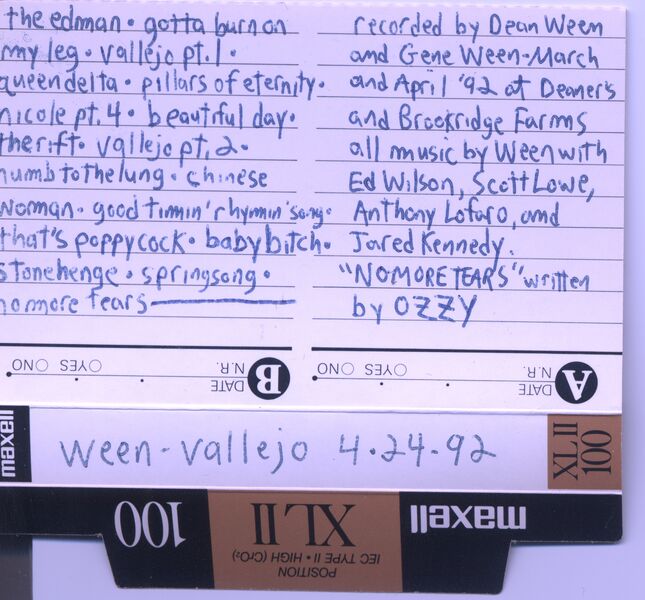 the edman • gotta burn on
my leg • vallejo pt. 1 •
queen delta • pillars of eternity •
nicole pt. 4 • beautiful day •
the rift • vallejo pt. 2 •
numb to the lung • chinese
woman • good timmin' rhymin' song •
that's poppycock • baby bitch •
stonehenge • springsong •
no more tears
recorded by Dean Ween
and Gene Ween-March
and April '92 at Deaner's
and Brookridge Farms
all music by Ween with
Ed Wilson, Scott Lowe,
Anthony Lofaro, and
Jared Kennedy.
"NO MORE TEARS" written
by OZZY
B DATE
N.R. ○YES ○NO
A DATE
N.R. ○YES ○NO
maxell
ween - vallejo 4•24•92
XL II
100
maxell XL II 100
IEC TYPE II • HIGH (CrO₂)
POSITION